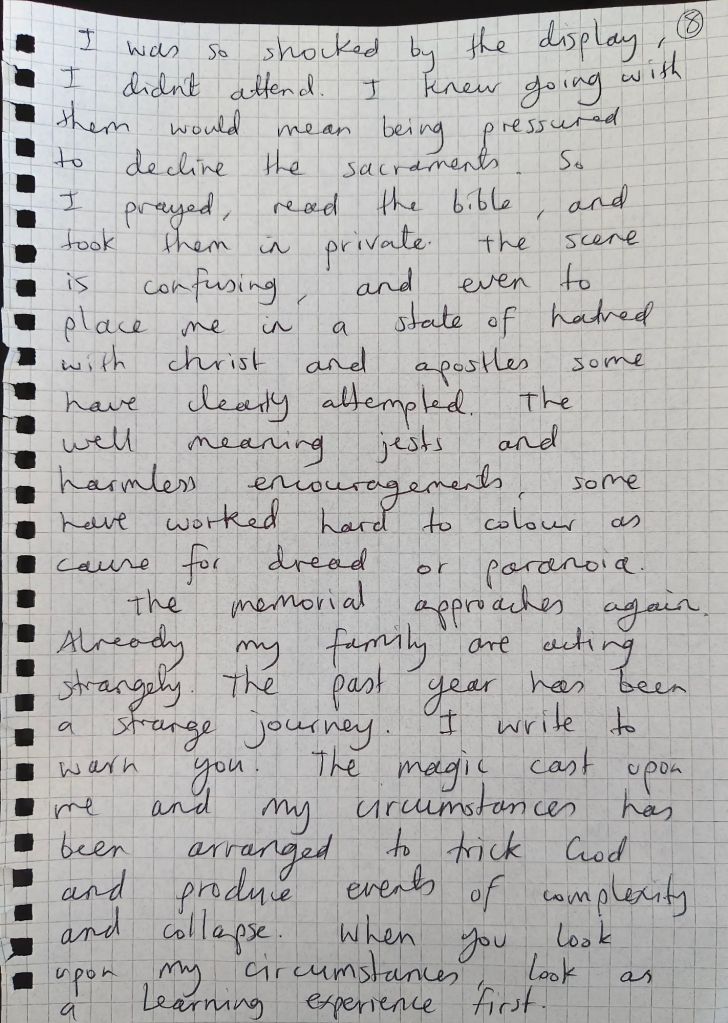 8
I was so shocked by the display,
I didnt attend. I knew going with
them would mean being pressured
to decline the sacraments. So
I prayed, read the bible, and
took them in private. The scene
is confusing, and even to
place me in a state of hatred
with christ and apostles some
have clearly attempted. The
well meaning jests and
harmless encouragements, some
have worked hard to colour as
cause for dread or paranoia.
The memorial approaches again.
Already my family are acting
strangely. The past year has been
a strange journey. I write to
warn you. The magic cast upon
me and my circumstances has
been arranged to trick God
and produce events of complexity
and collapse. When you look
upon my circumstances, look as
a learning experience first.